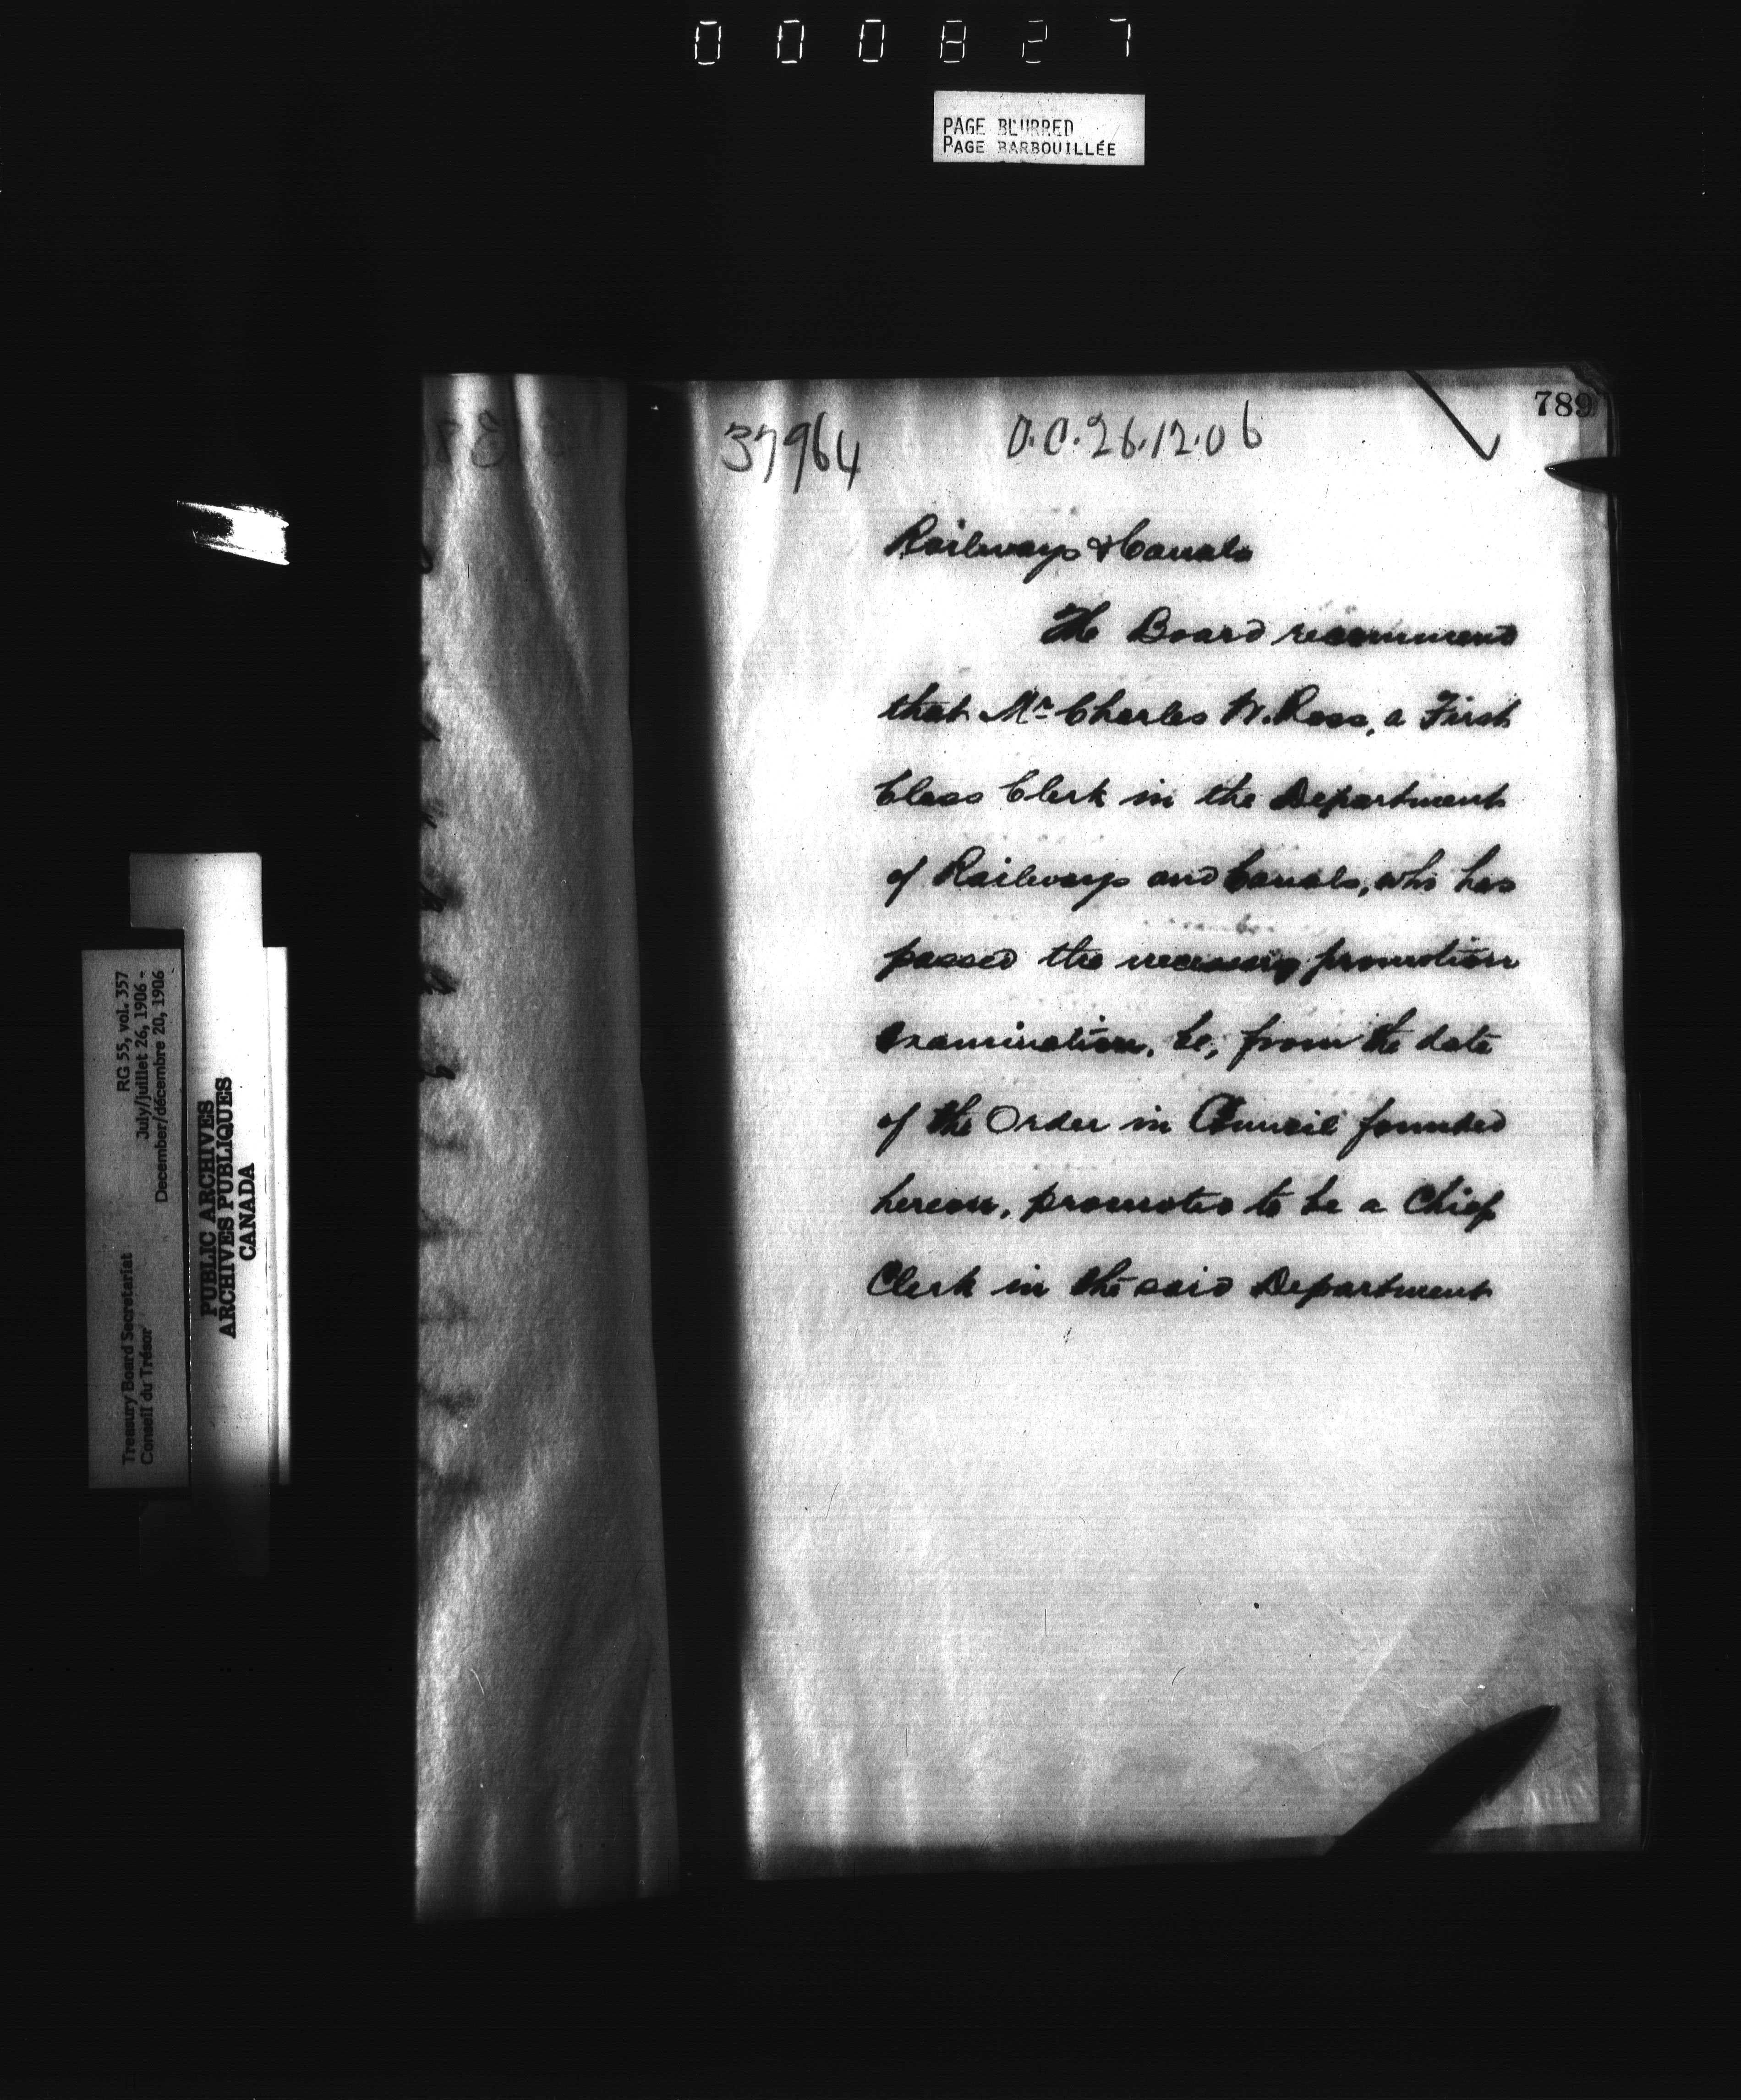 000827
PAGE BLURRED
PAGE BARBOUILLÉE
789
37964
O.C. 26.12.06
Railways & Canals
The Board recommend
that Mr. Charles W. Ross, a First
Class Clerk in the Department
of Railways and Canals, who has
passed the necessary promotion
examination, be, from the date
of the Order in Council founded
hereon, promoted to be a Chief
Clerk in the said Department
RG 55, vol. 357
July/juillet 26, 1906 -
December/décembre 20, 1906
Treasury Board Secretariat
Conseil du Trésor
PUBLIC ARCHIVES
ARCHIVES PUBLIQUES
CANADA